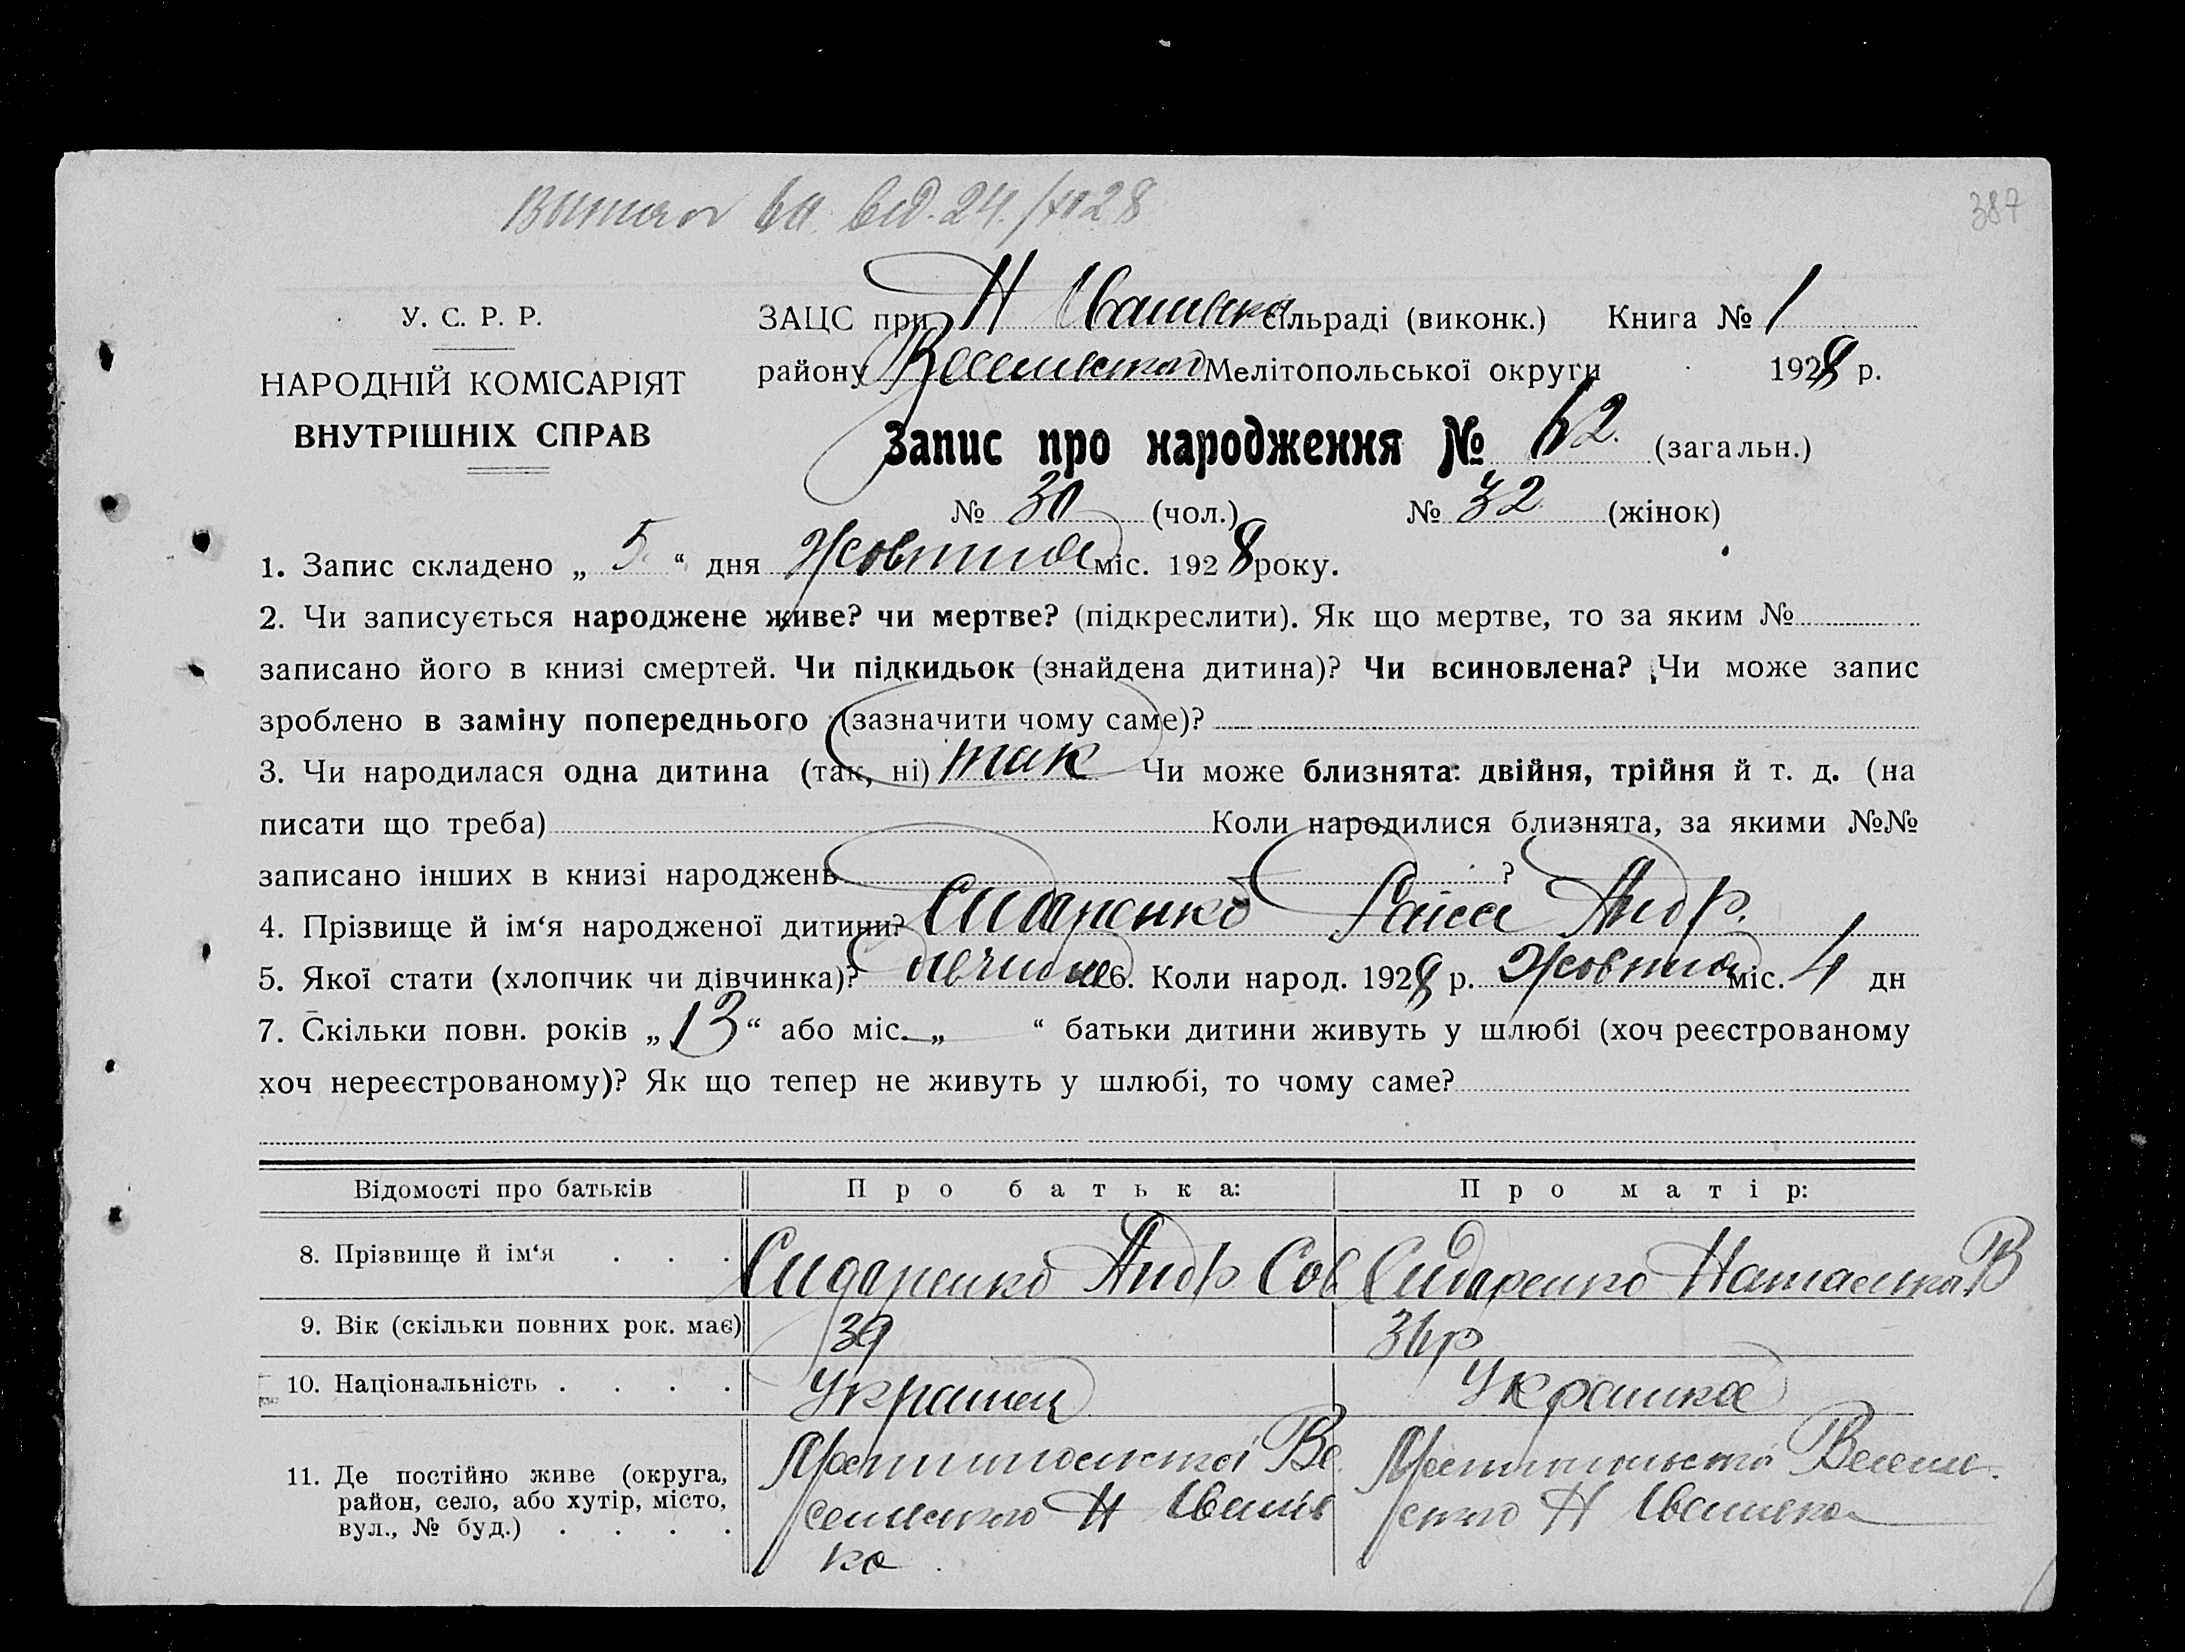 387
У. С. Р. Р.
НАРОДНІЙ КОМІСАРІЯТ
ВНУТРІШНІХ СПРАВ
ЗАЦС при Н Иванівка сільраді (виконк.) Книга № 1
району Веселівского Мелітопольської округи 1928 р.
Запис про народження № 62 (загальн.)
№ 30 (чол.) № 32 (жінок)
1. Запис складено „ 5 “ дня Жовтня міс. 1928 року.
2. Чи записується народжене живе? чи мертве? (підкреслити). Як що мертве, то за яким №
записано його в книзі смертей. Чи підкидьок (знайдена дитина)? Чи всиновлена? Чи може запис
зроблено в заміну попереднього (зазначити чому саме)?
3. Чи народилася одна дитина (так, ні) так Чи може близнята: двійня, трійня й т. д. (на
писати що треба) Коли народилися близнята, за якими №№
записано інших в книзі народжень ?
4. Прізвище й ім‘я народженої дитини? Сидаренко Раіса Андр.
5. Якої стати (хлопчик чи дівчинка)? дівчина 6. Коли народ. 1928 р. Жовтня міс. 4 дн
7. Скільки повн. років „ 13 “ або міс. „ “ батьки дитини живуть у шлюбі (хоч реєстрованому
хоч нереєстрованому)? Як що тепер не живуть у шлюбі, то чому саме?
Відомості про батьків Про батька: Про матір:
8. Прізвище й ім‘я . . . Сидаренко Андр Сав Сидаренко Наталка В
9. Вік (скільки повних рок. має) 39 36 р
10. Національність . . . . Украінец Украінка
11. Де постійно живе (округа,
район, село, або хутір, місто,
вул., № буд.) . . . .
Мелитопольскої Ве
селівского Н Иванів
ка.
Мелитопольскої Веселив.
ского Н Иванивка